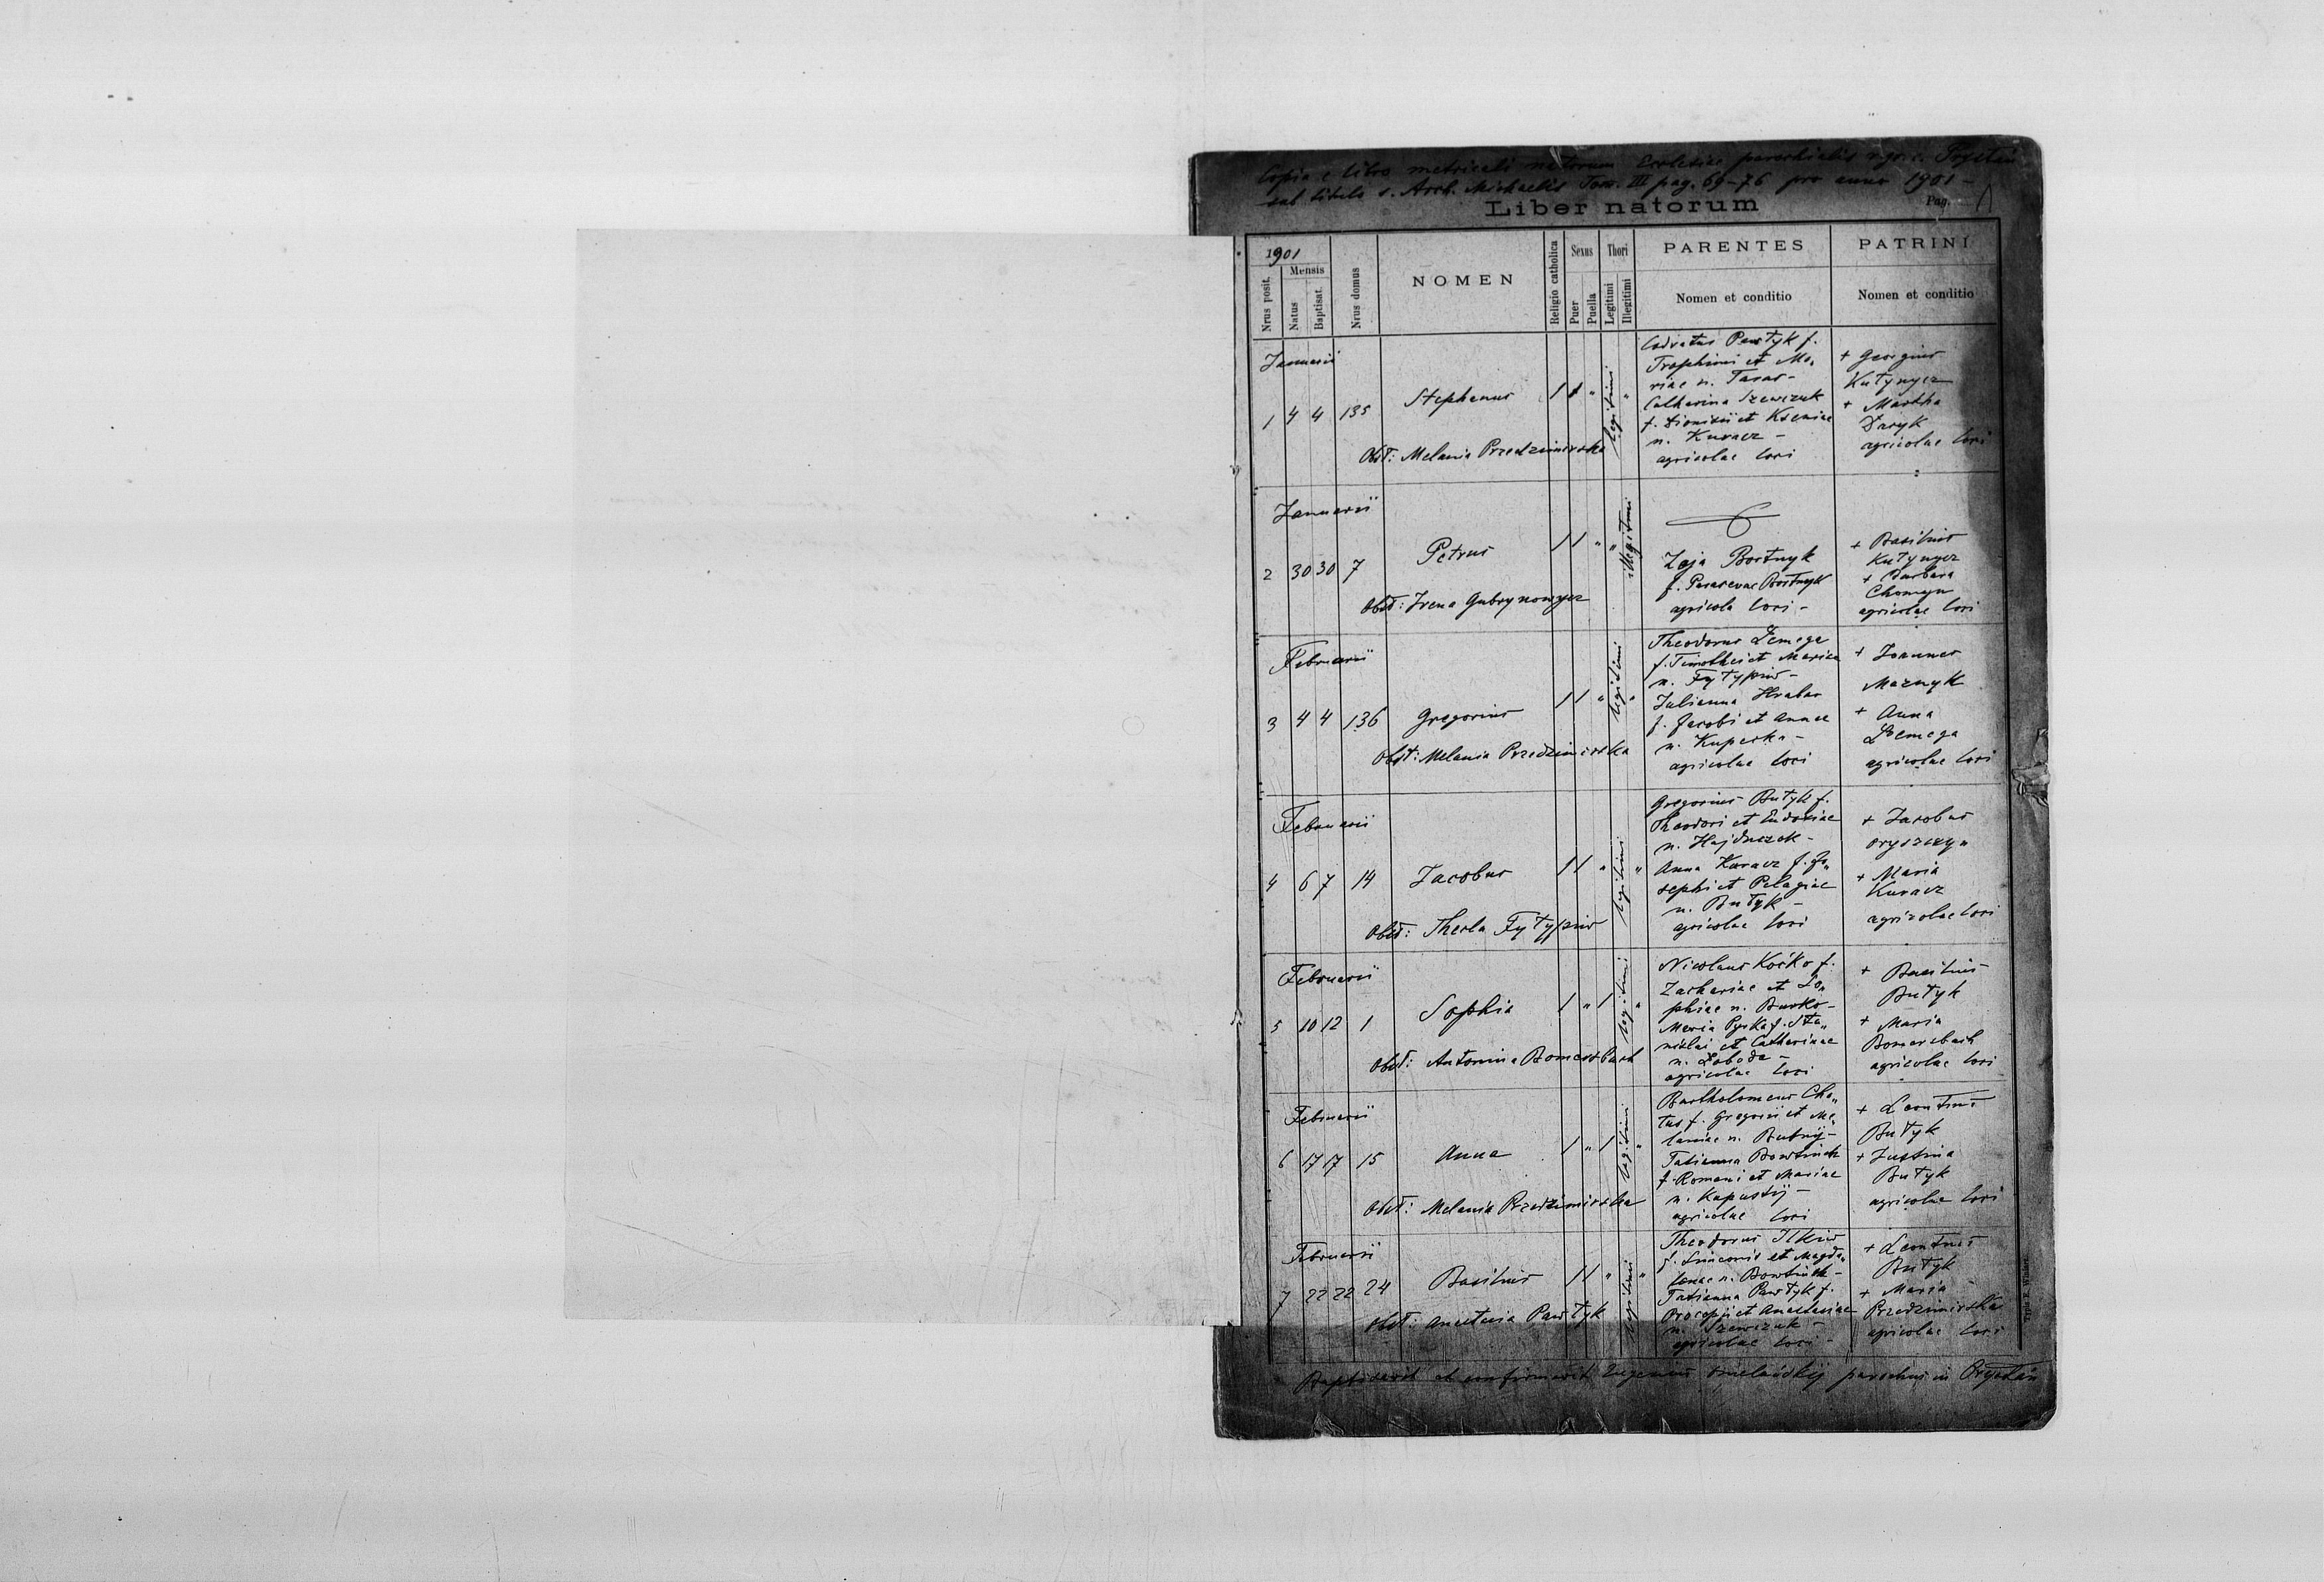 Copia e libro metricali natorum Ecclesiae parochialis r. gr. c.
sub titulo s. Arch. Michaelis Tom. III pag. 69-76 pro anno 1901 -
Liber natorum
Pag. 1
1901
Nrus posit.
Mensis
Natus
Baptisat.
Nrus domus
NOMEN
Religio catholica
Sexus
Puer
Puella
Thori
Legitimi
Illegitimi
PARENTES
Nomen et conditio
PATRINI
Nomen et conditio
Januarii
1 4 4 135 Stephanus 1 1 " legitimi "
Obst: Melania Przedzimirska
Pawtyk f.
Trophimi et Ma„
riae n. Taras -
Catharina Szewczuk
f. Dionisii et Kseniae
n. Kuracz -
agricolae loci
+ Georgius
Kutynycz
+ Martha
Daryk
agricolae loci
Januarii
2 30 30 7 Petrus 1 1 " " illegitimi
Obst: Irena Gubrynowycz
Zoja Bortnyk
f. Parascevae Bortnyk
agricola loci -
+ Basilius
Kutynycz
+ Barbara
Chomyn
agricolae loci
Februarii
3 4 4 136 Gregorius 1 1 " legitimi "
Obst: Melania Przedzimirska
Theodorus Demega
f. Timothei et Mariae
n. Fytypiw -
Julianna Hrabar
f. Jacobi et Annae
n. Kuperka -
agricolae loci
+ Joannes
Maznyk
+ Anna
Demega
agricolae loci
Februarii
4 6 7 14 Jacobus 1 1 " legitimi "
Obst: Thecla Fytypiw
Gregorius Butyk f.
Theodori et Eudoxiae
n. Hajduczok -
Anna Kuracz f. Jo„
sephi et Pelagiae
n. Butyk -
agricolae loci
+ Jacobus
Oryszczy„
+ Maria
Kuracz
agricolae loci
Februarii
5 10 12 1 Sophia 1 " 1 legitimi "
Obst: Antonina Bomersbach
Nicolaus Kośko f.
Zachariae et So„
phiae n. Burko -
Maria Pyrka f. Sta„
nislai et Catharinae
n. Łoboda -
agricolae loci
+ Basilius
Butyk
+ Maria
Bomersbach
agricolae loci
Februarii
6 17 17 15 Anna 1 " 1 legitimi "
Obst: Melania Przedzimirska
Bartholomeus Cho„
tas f. Gregorii et Me„
laniae n. Bubnij -
Tatianna Bowtiuch
f. Romani et Mariae
n. Kapustij -
agricolae loci
+ Leontius
Butyk
+ Justina
Butyk
agricolae loci
Februarii
7 22 22 24 Basilius 1 1 " legitimi "
Obst: Anastasia Pawtyk
Theodorus Ilkiw
f. Simeonis et Magda„
lenae n. Bowtiuch -
Tatianna Pawtyk f.
Procopii et Anastasiae
n. Szewczuk -
agricolae loci -
+ Leontius
Butyk
+ Maria
Przedzimirska
agricolae loci
Baptisavit et confirmavit Eugenius Omelańskij parochus in Prystań
Typis E. Winiarz.